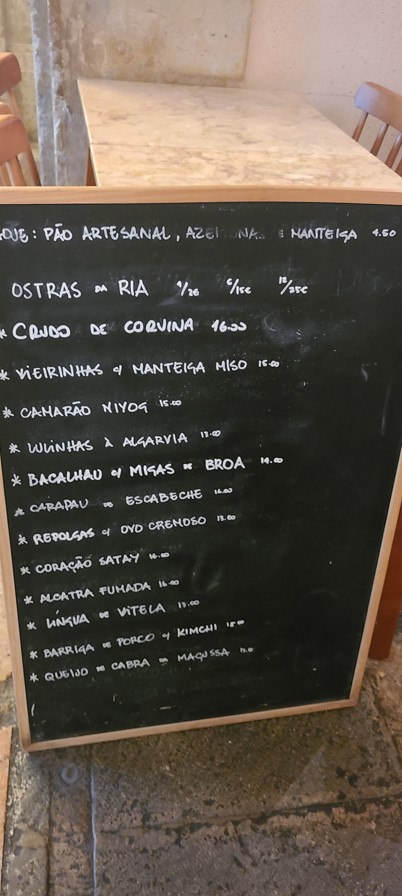 PÃO ARTESANAL, AZEITONAS E MANTEIGA 4.50
OSTRAS DA RIA 1/3€ 6/15€ 12/25€
* CRUDO DE CORVINA 16.00
* VIEIRINHAS C/ MANTEIGA MISO 15.00
* CAMARÃO NIYOG 15.00
* LULINHAS À ALGARVIA 13.00
* BACALHAU C/ MIGAS DE BROA 14.00
* CARAPAU DE ESCABECHE
* REPOLGAS C/ OVO CREMOSO 13.00
* CORAÇÃO SATAY
* ALCATRA FUMADA 16.00
* LÍNGUA DE VITELA 13.00
* BARRIGA DE PORCO C/ KIMCHI
* QUEIJO DE CABRA DA MAÇUSSA